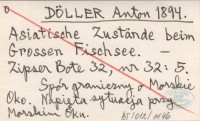 DÖLLER Anton 1894.
Asiatische Zustände beim
Grossen Fischsee. —
Zipser Bote 32, nr 32: 5.
Spór graniczny o Morskie
Oko. Napięta sytuacja przy
Morskim Oku.